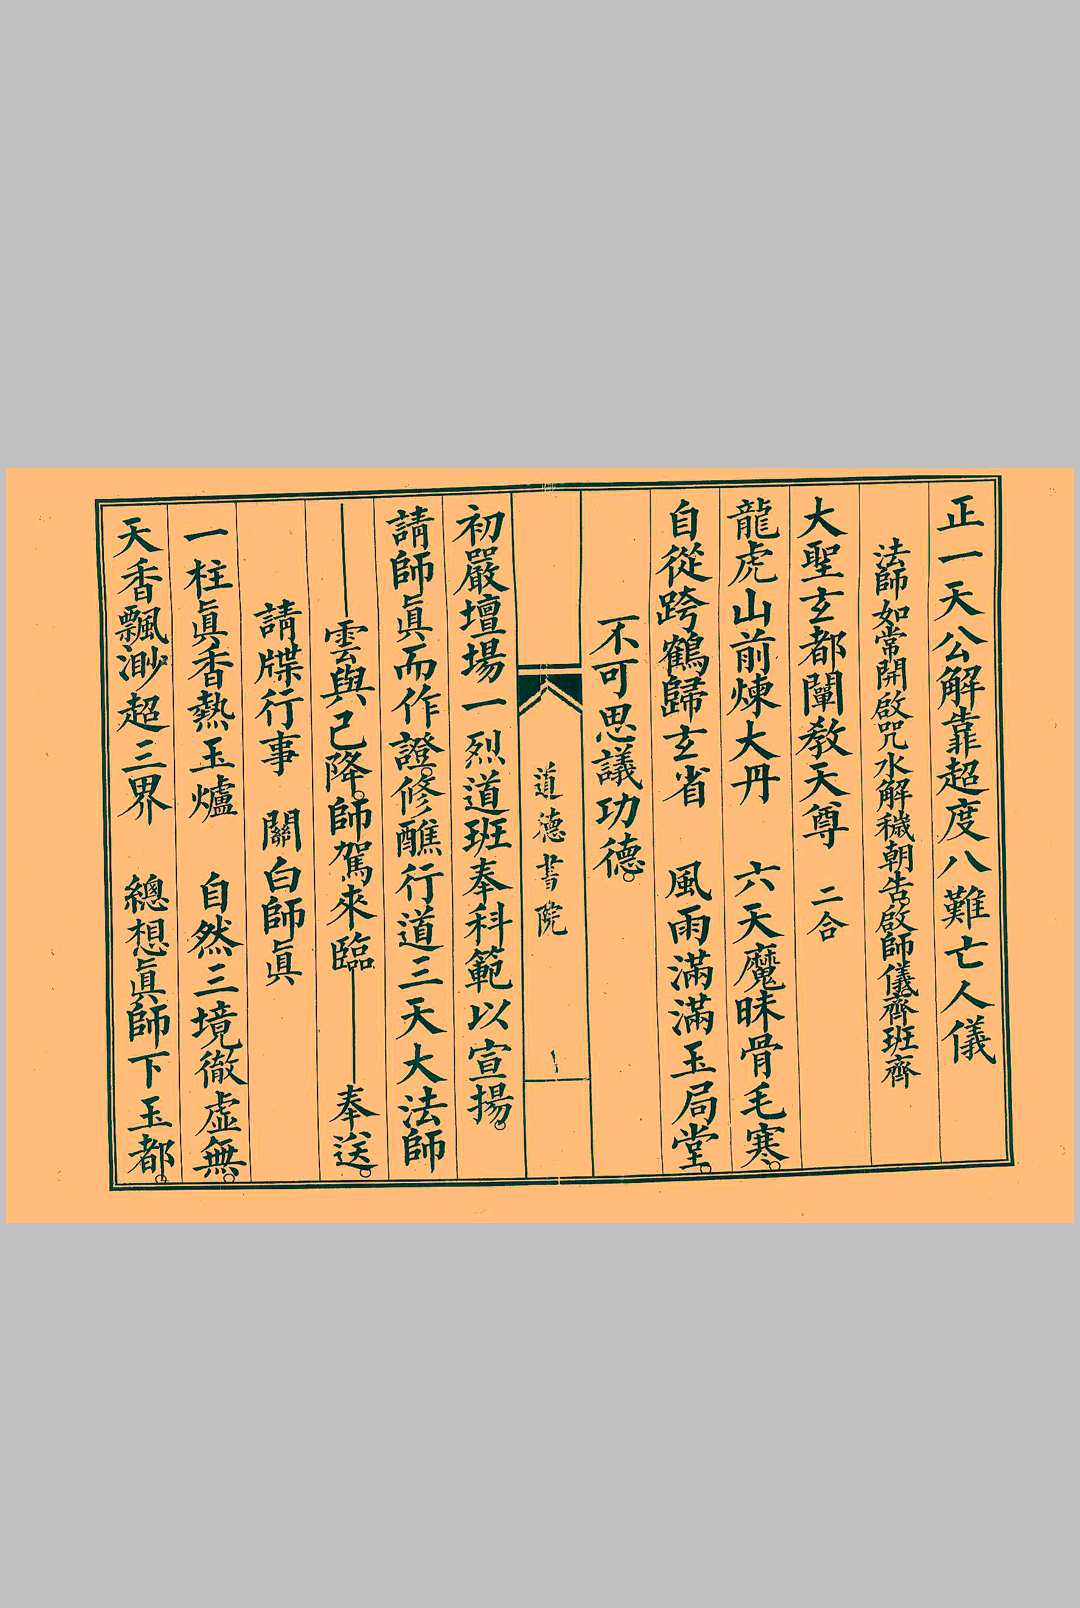 正一天公解靠超度八難亡人儀
法師如常開啟咒水解穢朝告啟師儀齊班齊
大聖玄都闡教天尊 二合
龍虎山前煉大丹 六天魔昧骨毛寒。
自從跨鶴歸玄省 風雨滿滿玉局堂。
不可思議功德。
道德書院
初嚴壇場一烈道班奉科範以宣揚。
請師眞而作證。修醮行道三天大法師
——雲與已降。師駕來臨——奉送。
請牒行事 關白師眞
一柱眞香熱玉爐 自然三境徹虛無。
天香飄渺超三界 總想眞師下玉都。